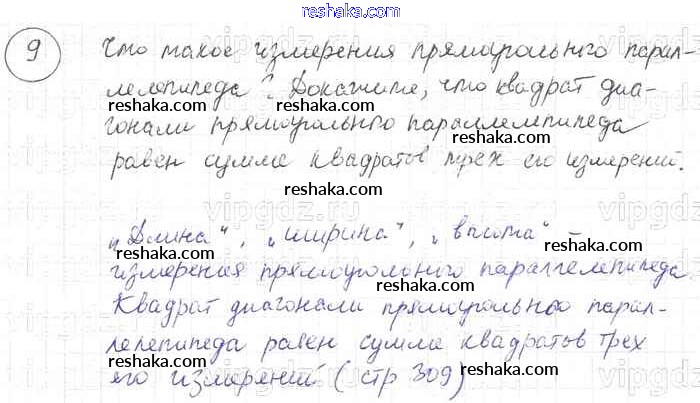 reshaka.com
9 Что такое измерения прямоугольного парал-
лелепипеда? Докажите, что квадрат диа-
reshaka.com reshaka.com
гонали прямоугольного параллелепипеда
reshaka.com
равен сумме квадратов трех его измерений.
reshaka.com
vipgdz.ru vipgdz.ru vipgdz.ru
„Длина“, „ширина“, „высота“ –
reshaka.com reshaka.com
измерения прямоугольного параллелепипеда.
Квадрат диагонали прямоугольного парал-
reshaka.com
лелепипеда равен сумме квадратов трех
reshaka.com
его измерений (стр 309)
reshaka.com